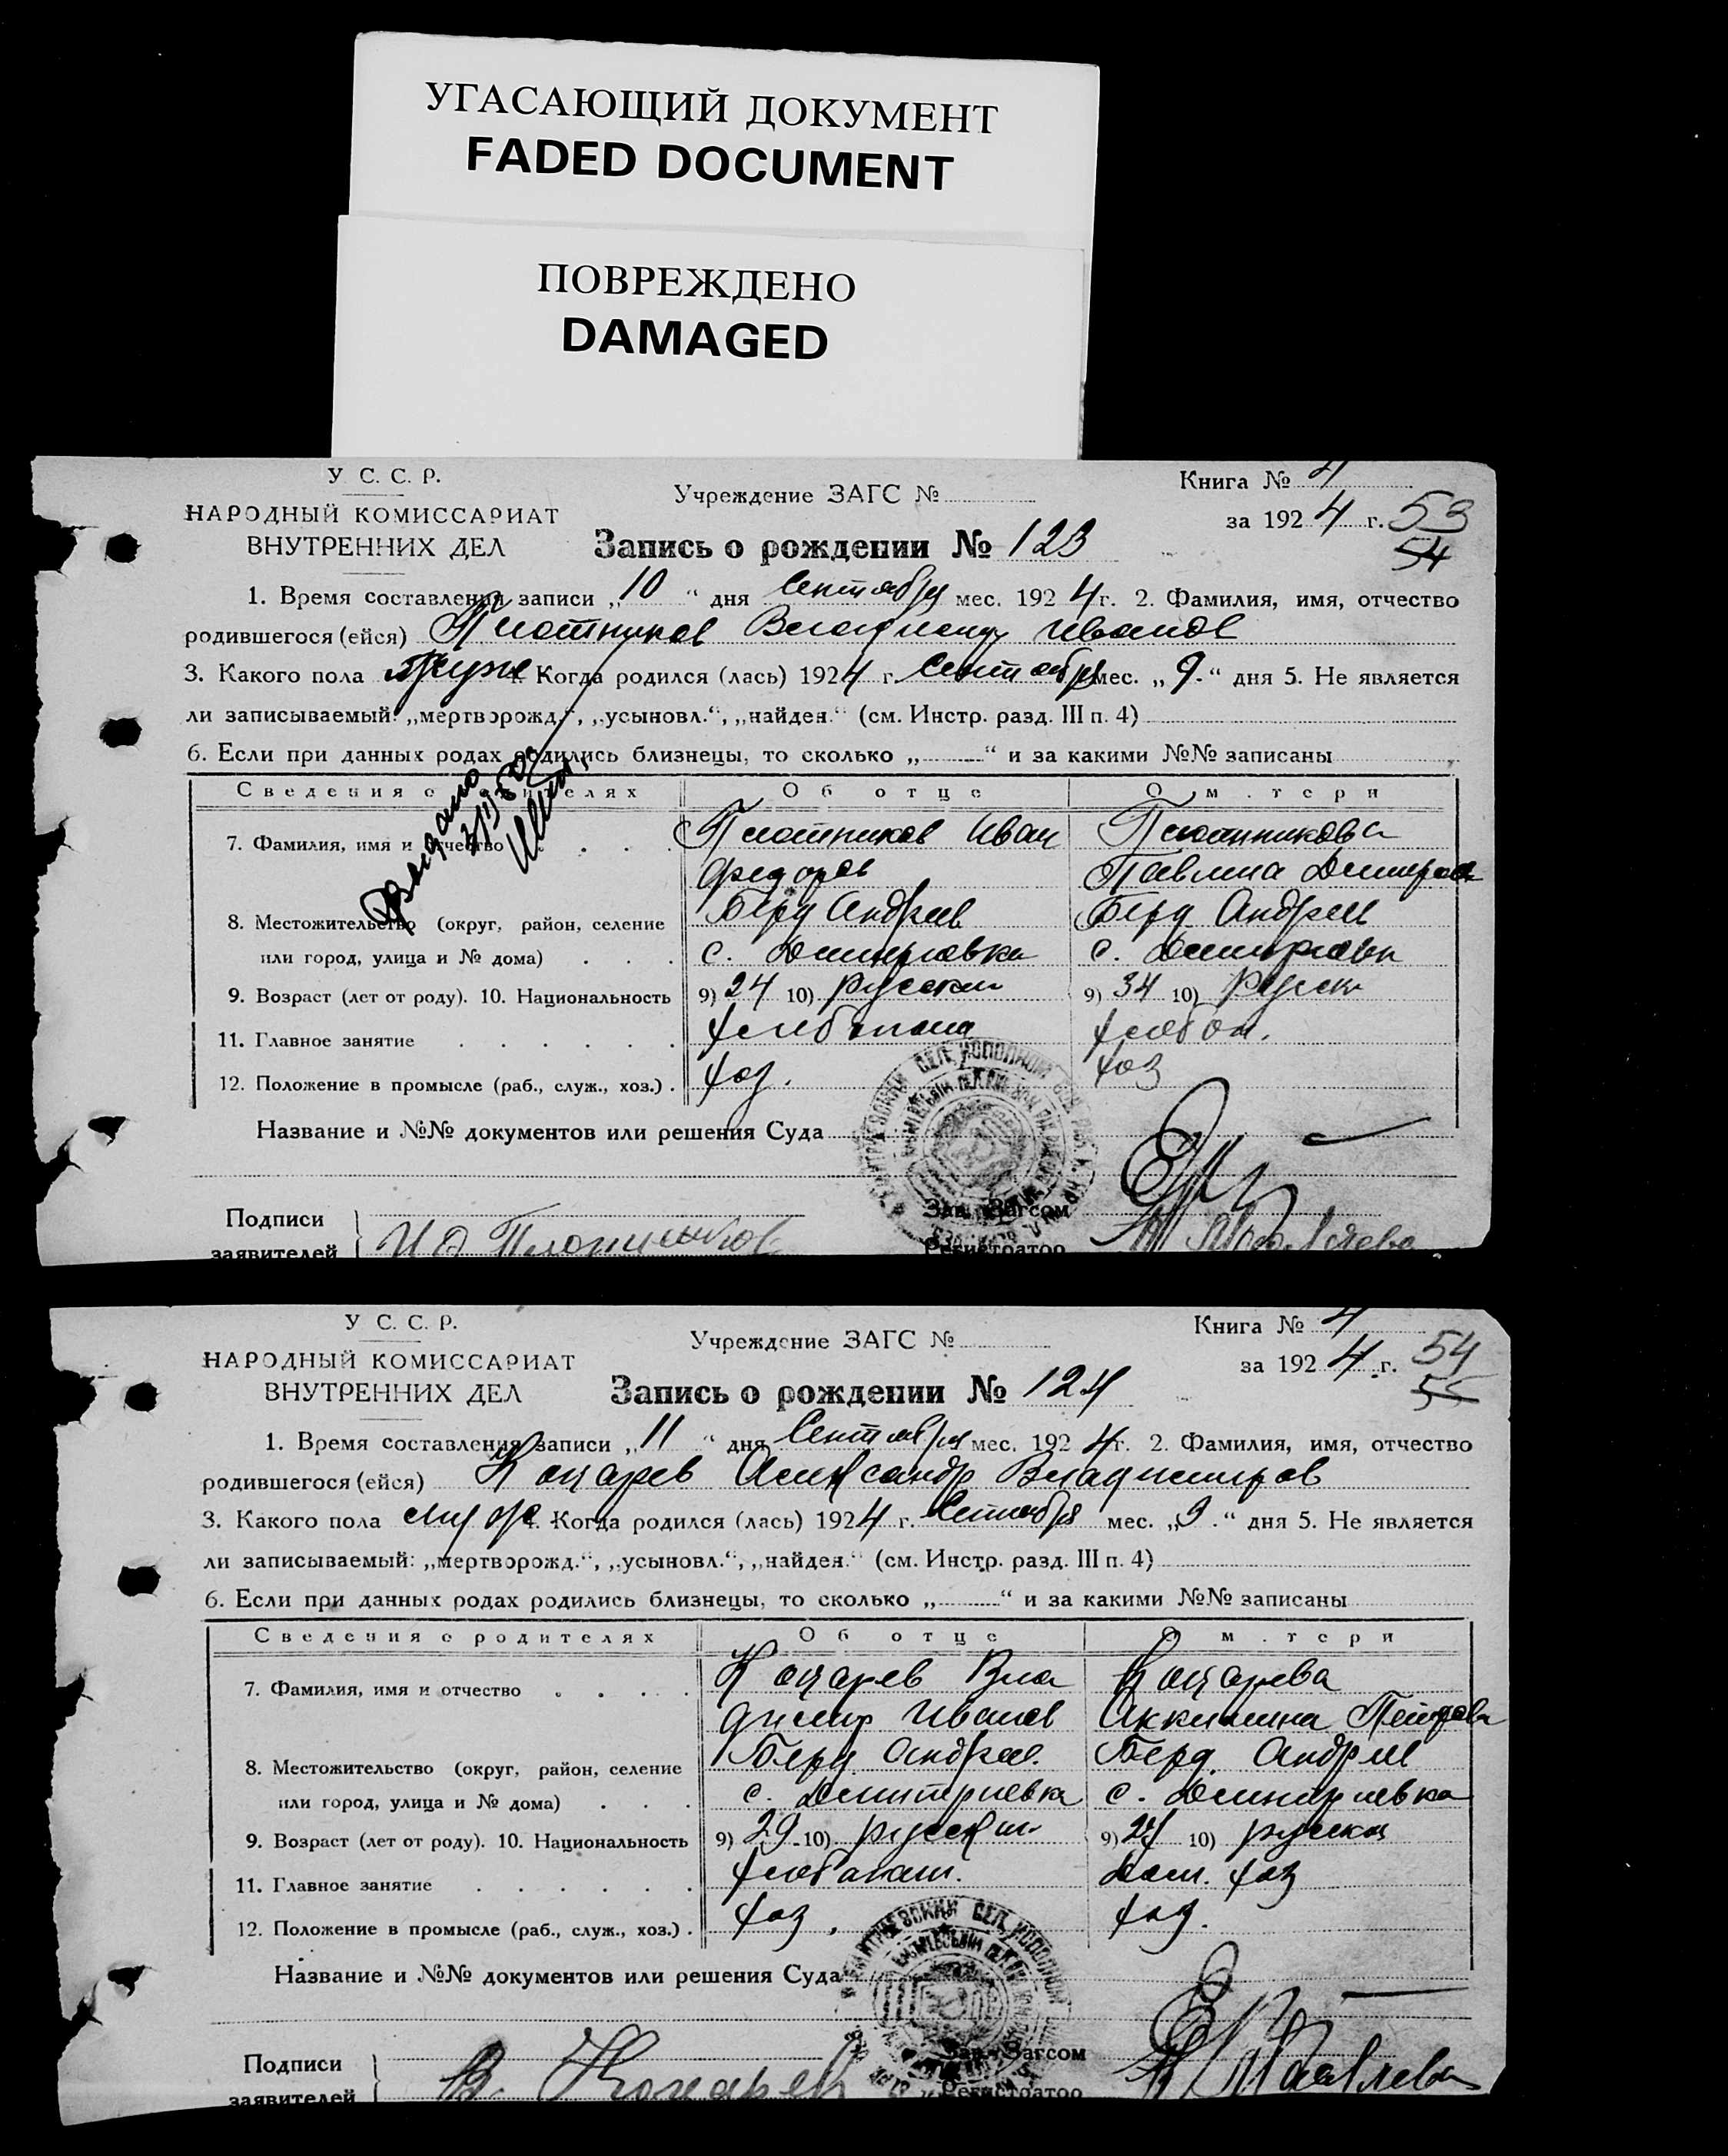 УГАСАЮЩИЙ ДОКУМЕНТ
FADED DOCUMENT
ПОВРЕЖДЕНО
DAMAGED
У С. С. Р.
НАРОДНЫЙ КОМИССАРИАТ
ВНУТРЕННИХ ДЕЛ
Учреждение ЗАГС №
Книга № 4
за 1924 г. 53
54
Запись о рождении № 123
1. Время составления записи „10“ дня Сентября мес. 1924 г. 2. Фамилия, имя, отчество
родившегося (ейся) Плотников Иванов
3. Какого пола 4. Когда родился (лась) 1924 г. Сентября мес. „9.“ дня 5. Не является
ли записываемый: „мертворожд.“, „усыновл.“, „найден.“ (см. Инстр. разд. III п. 4)
6. Если при данных родах родились близнецы, то сколько „ “ и за какими №№ записаны
Выдано
Сведения о родителях Об отце О м.тери
7. Фамилия, имя и отчество Плотников Иван Плотникова
Федоров Павлина Дмитров
8. Местожительство (округ, район, селение Берд Андреев Берд Андреев
или город, улица и № дома) с. Дмитриевка с. Дмитриевка
9. Возраст (лет от роду). 10. Национальность 9) 24 10) русский 9) 34 10) русск
11. Главное занятие хлебопаш хлебоп.
12. Положение в промысле (раб., служ., хоз.) хоз. хоз
Название и №№ документов или решения Суда
Зав. Загсом
Подписи
заявителей И Ф Плотников
Регистратор
У С. С. Р.
НАРОДНЫЙ КОМИССАРИАТ
ВНУТРЕННИХ ДЕЛ
Учреждение ЗАГС №
Книга № 4
за 1924 г. 54
55
Запись о рождении № 124
1. Время составления записи „11“ дня Сентября мес. 1924 г. 2. Фамилия, имя, отчество
родившегося (ейся) Коцарев Александр Владимиров
3. Какого пола муж 4. Когда родился (лась) 1924 г. Сентября мес. „9.“ дня 5. Не является
ли записываемый: „мертворожд.“, „усыновл.“, „найден.“ (см. Инстр. разд. III п. 4)
6. Если при данных родах родились близнецы, то сколько „ “ и за какими №№ записаны
Сведения о родителях Об отце О м.тери
7. Фамилия, имя и отчество Коцарев Вла Коцарева
димир Иванов Аккилина
8. Местожительство (округ, район, селение Берд Андреев. Берд. Андреев
или город, улица и № дома) с. Дмитриевка с. Дмитриевка
9. Возраст (лет от роду). 10. Национальность 9) 29 10) русский 9) 24 10) русская
11. Главное занятие хлебопаш. Дом. хоз
12. Положение в промысле (раб., служ., хоз.) хоз. хоз.
Название и №№ документов или решения Суда
Зав. Загсом
Подписи
заявителей В. Коцарев
Регистратор